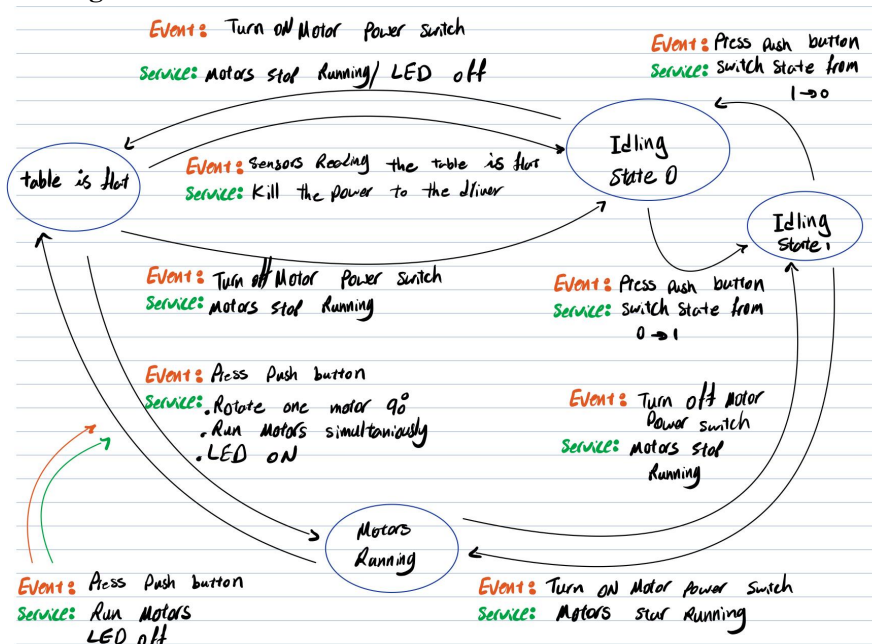 Event: Turn ON Motor Power Switch
Service: Motors stop Running/ LED off
Event: Press push button
Service: Switch State from
1→0
table is flat
Event: Sensors Reading the table is flat
Service: Kill the power to the driver
Idling
State 0
Idling
State 1
Event: Turn off Motor Power switch
Service: Motors stop Running
Event: Press push button
Service: Switch State from
0→1
Event: Press Push button
Service: .Rotate one motor 90°
.Run Motors simultaniously
.LED ON
Event: Turn off Motor
Power switch
Service: Motors stop
Running
Motors
Running
Event: Press Push button
Service: Run Motors
LED off
Event: Turn ON Motor Power Switch
Service: Motors star Running